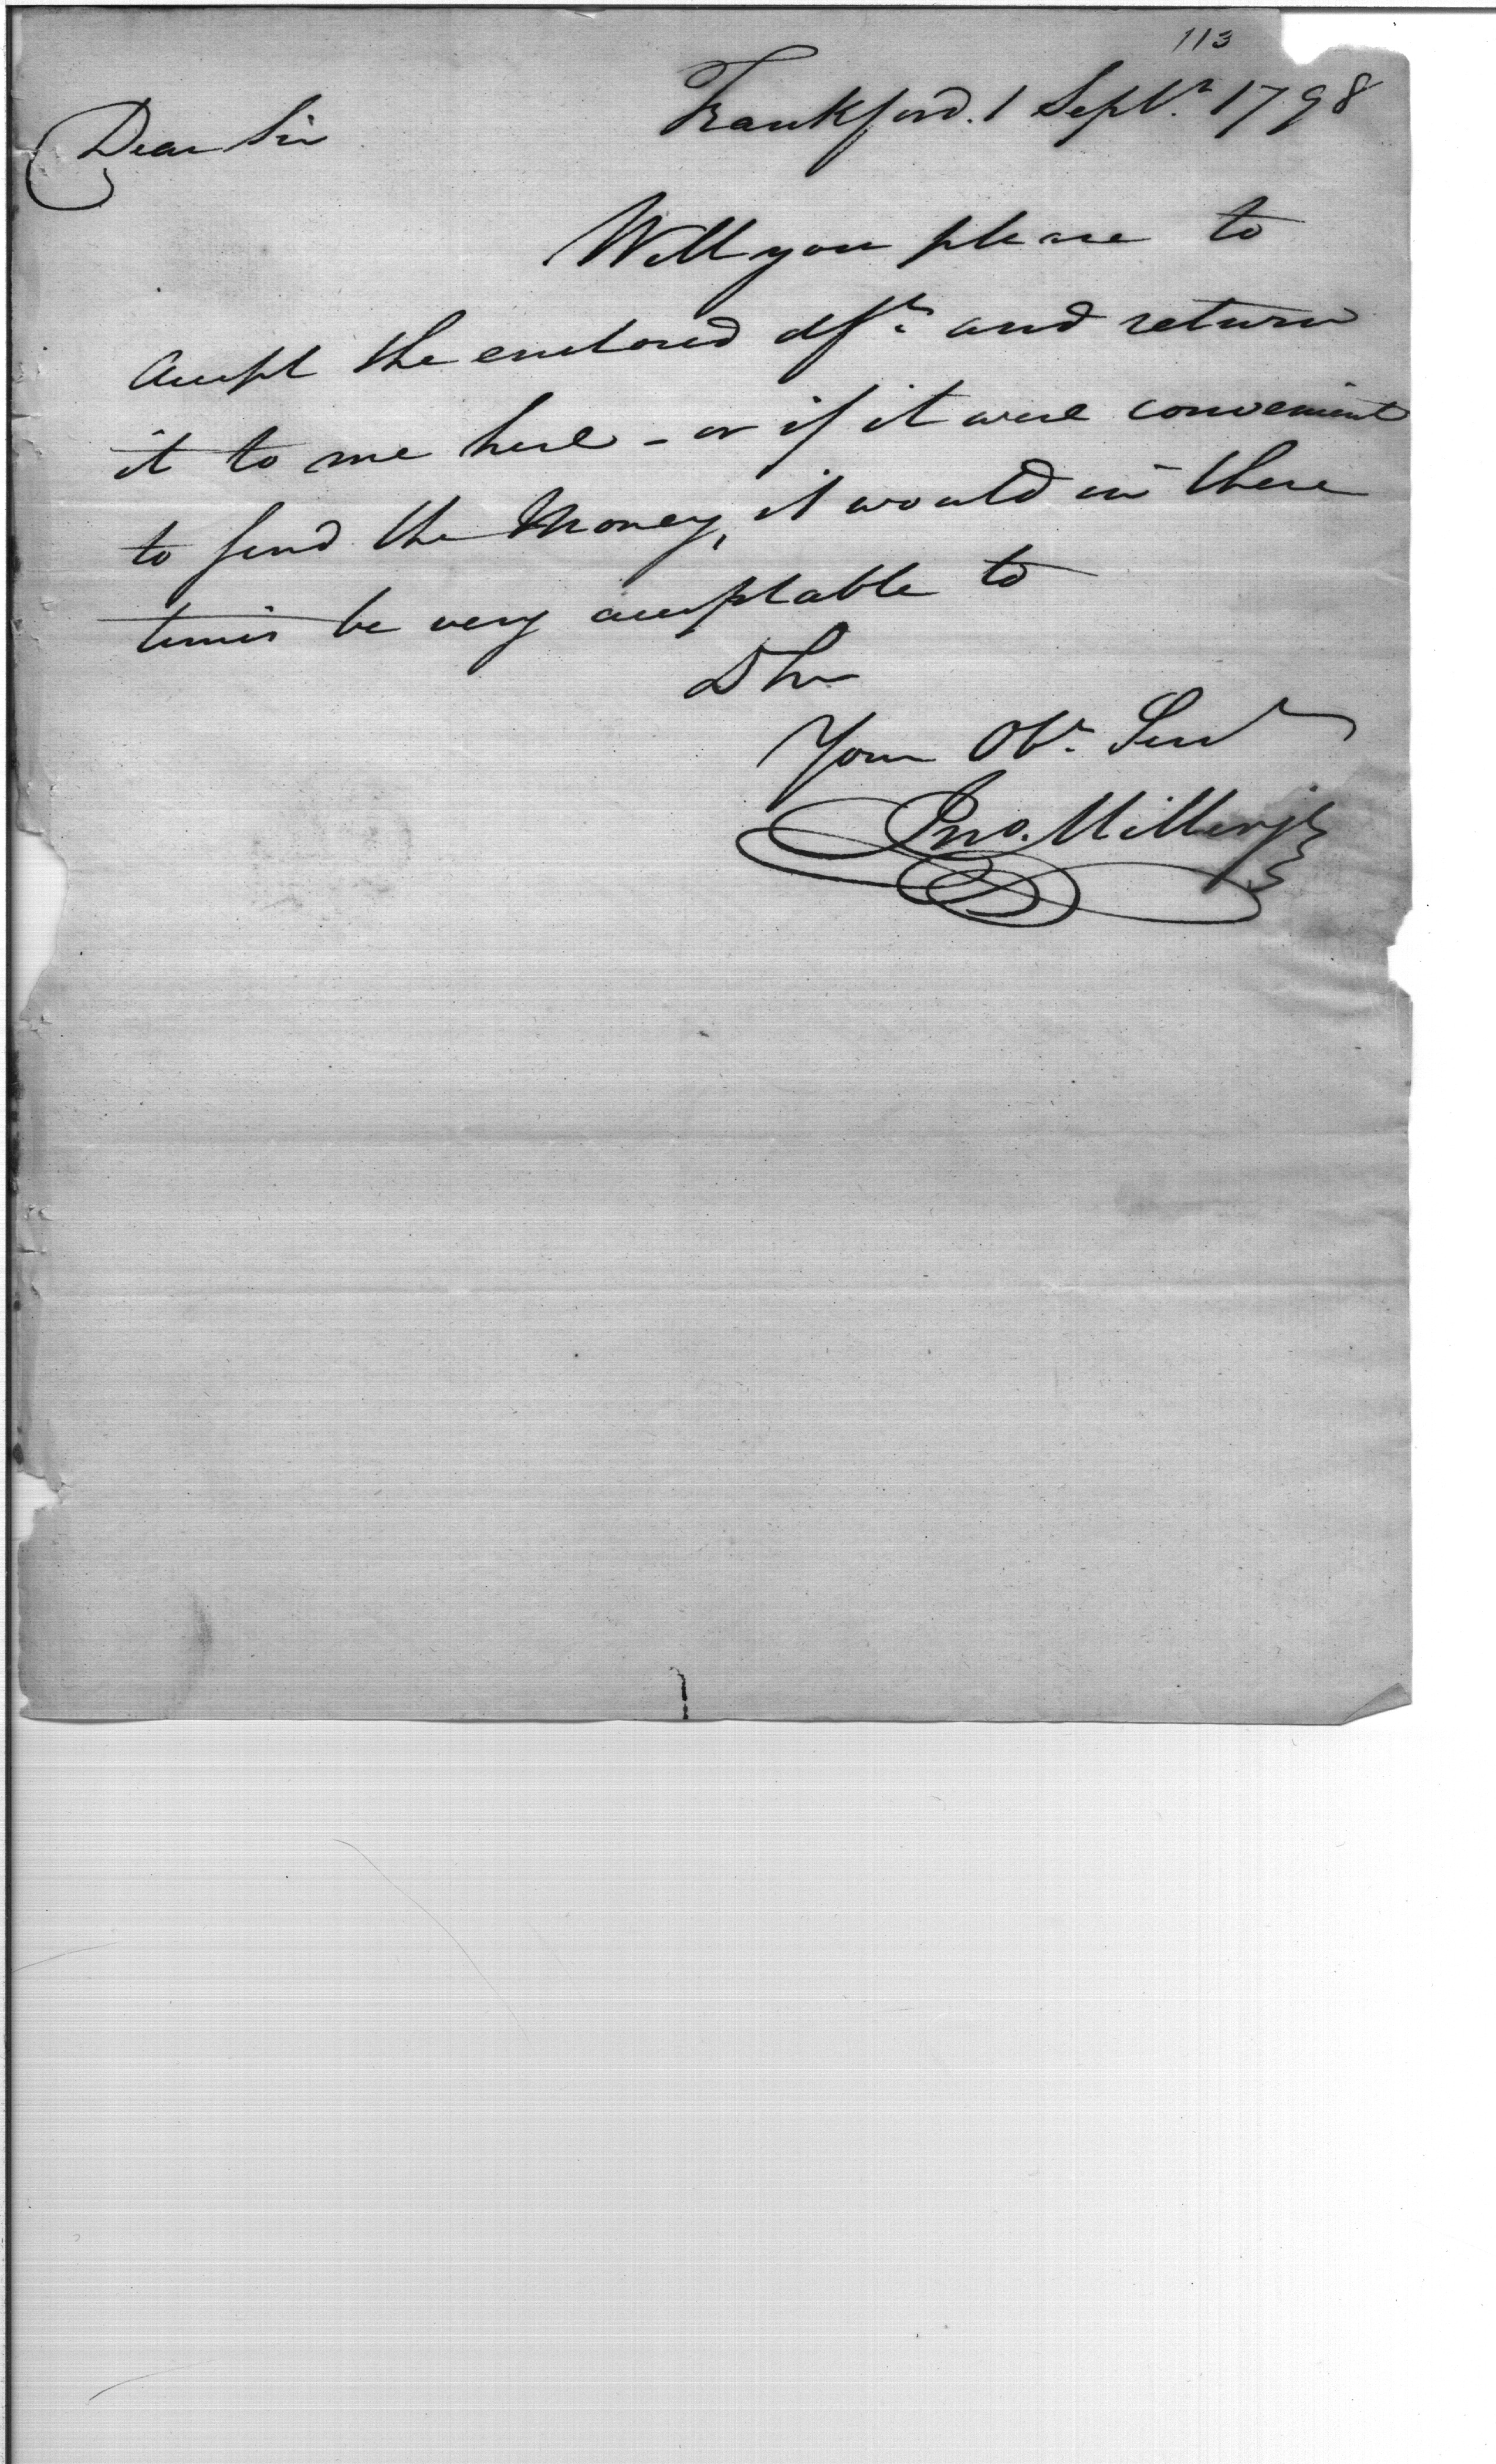 113
Frankford. 1 Septr. 1798
Dear Sir
Will you please to
accept the enclosed dft. and return
it to me here - or if it were convenient
to send the Money, it would in these
times be very acceptable to
D Sir
Your Obt. Servt
Jno. Miller jr